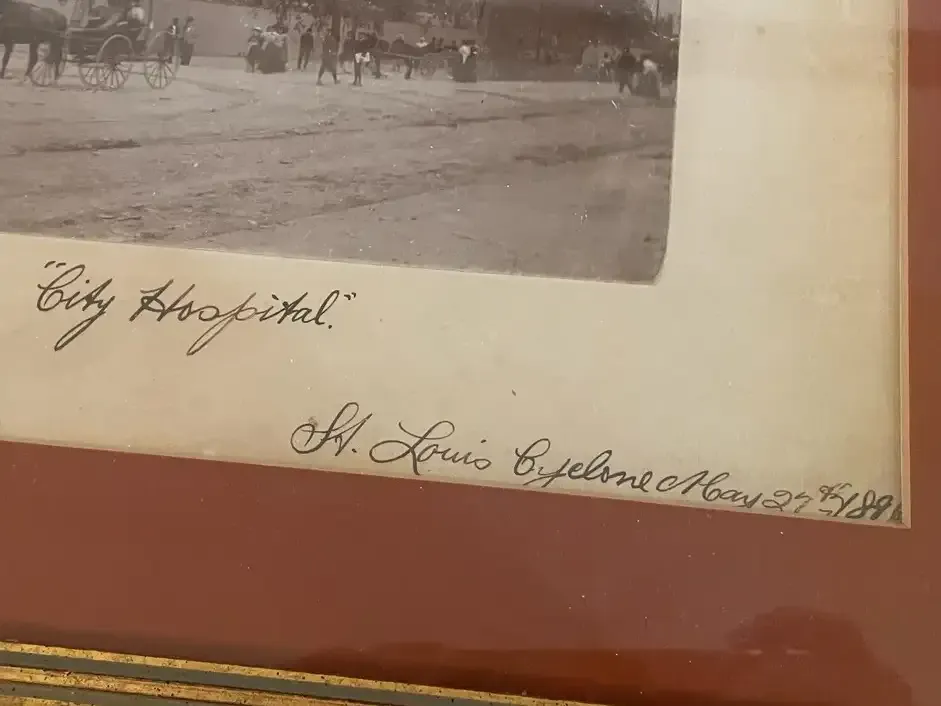 "City Hospital."
St. Louis Cyclone May 27th 1896